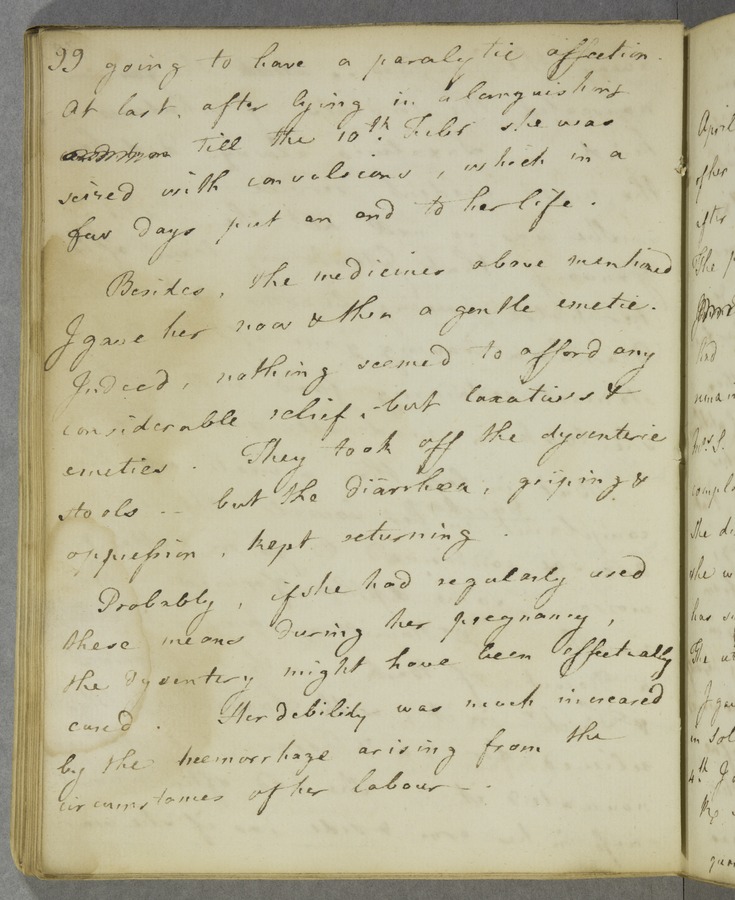 99 going to have a paralytic affection.
At last, after lying in a languishing
till the 10th. Febr she was
seized with convulsions, which in a
few days put an end to her life.
Besides, the medicines above mentioned
I gave her now & then a gentle emetic.
Indeed, nothing seemed to afford any
considerable relief, but laxatives &
emetics. They took off the dysenteric
stools -- but the diärrhea, griping &
oppression, kept returning.
Probably, if she had regularly used
these means during her pregnancy,
the dysentery might have been effectually
cured. Her debility was much increased
by the hemorrhage arising from the
circumstances of her labour -.
April
of her
after
The
had
Mrs. S.
compl
the di
she w
has
The
I gav
in sol
4th